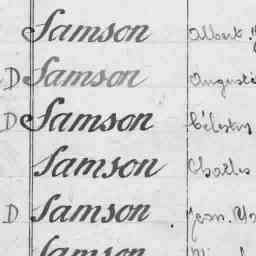 Samson Albert
D Samson Augusti
D Samson Célestin
Samson Charles
D Samson Jean
Samson